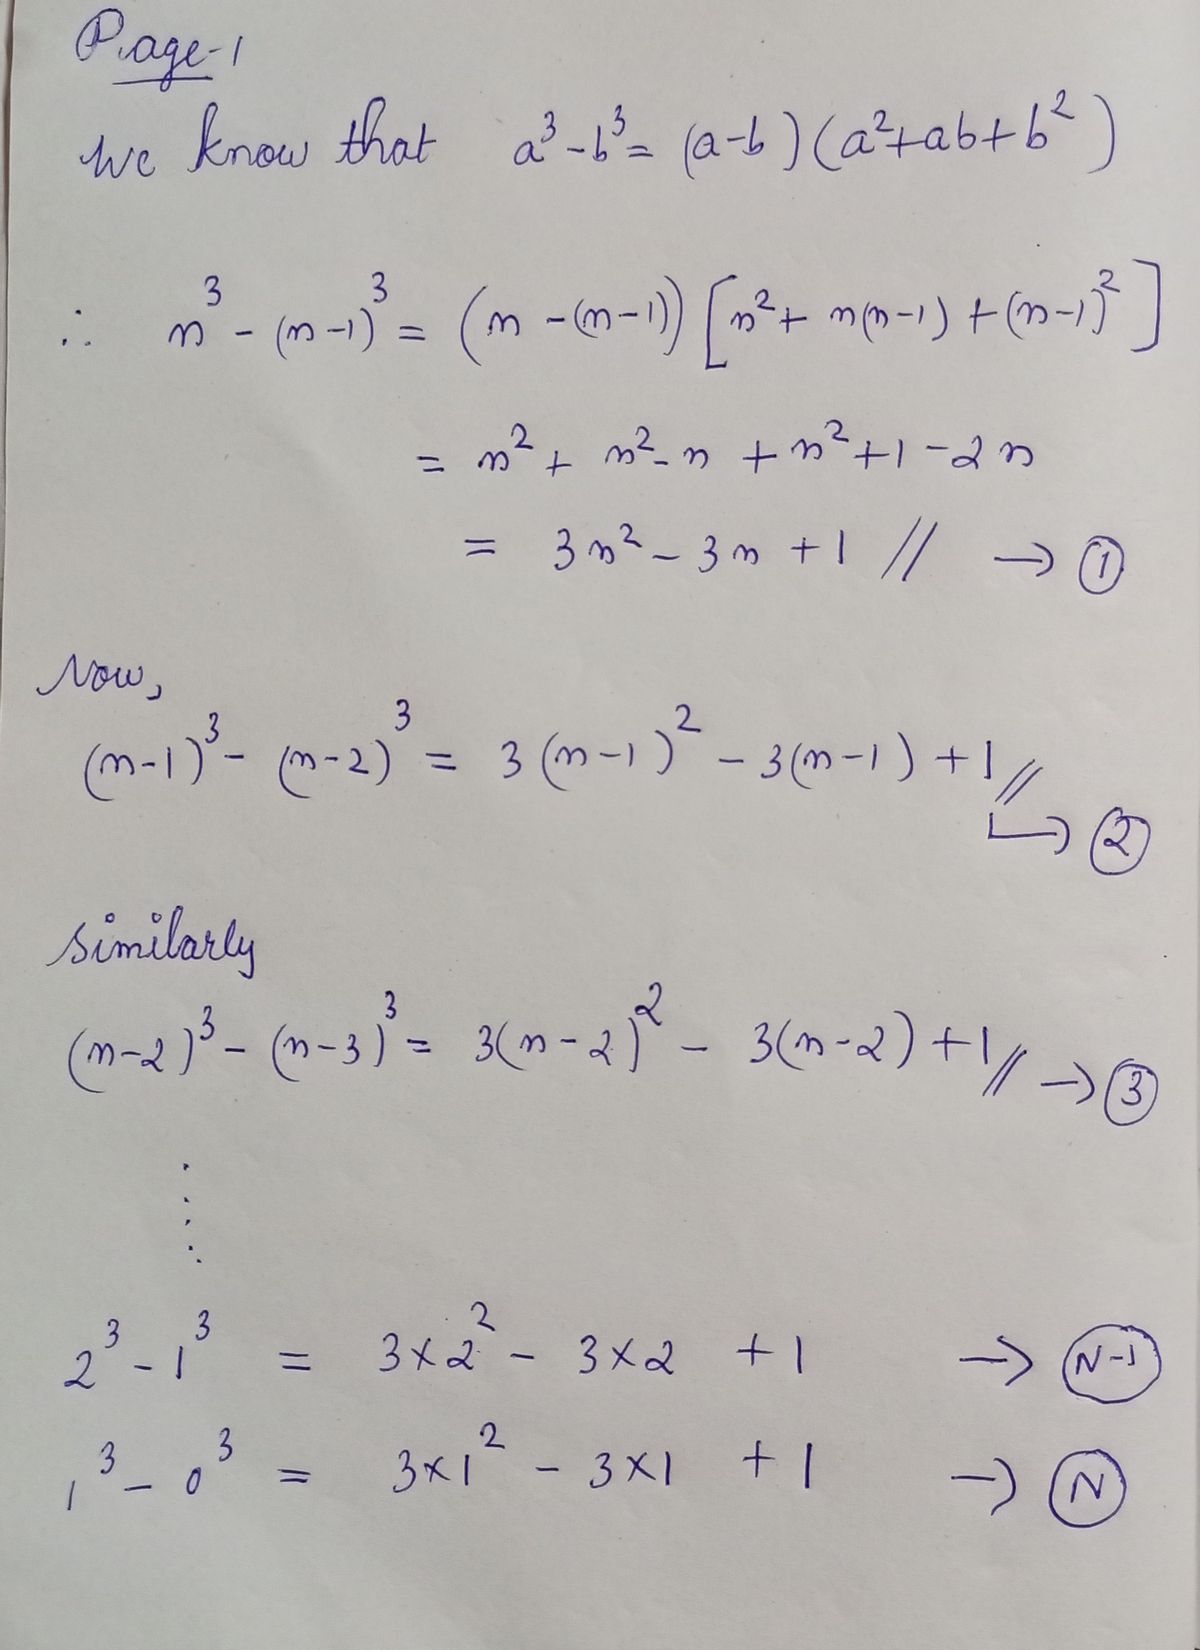 Page-1
We know that a³-b³= (a-b)(a²+ab+b²)
∴ n³-(n-1)³= (n-(n-1))[n²+ n(n-1) +(n-1)²]
= n²+ n²-n +n²+1-2n
= 3n²-3n+1 // → ①
Now,
(n-1)³-(n-2)³= 3(n-1)²-3(n-1)+1//
↳ ②
Similarly
(n-2)³-(n-3)³= 3(n-2)²- 3(n-2)+1// → ③
⋮
2³-1³ = 3×2²- 3×2 +1 → (N-1)
1³-0³ = 3×1²- 3×1 +1 → (N)